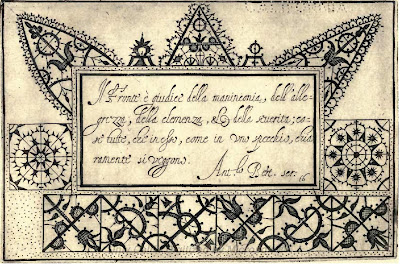 Il Fronte è giudice della maninconia, dell'alle-
grezza, della clemenza, & della seuerità; co-
se tutte, che in esso, come in vno specchio, chia
ramente si ueggono.
Ant.